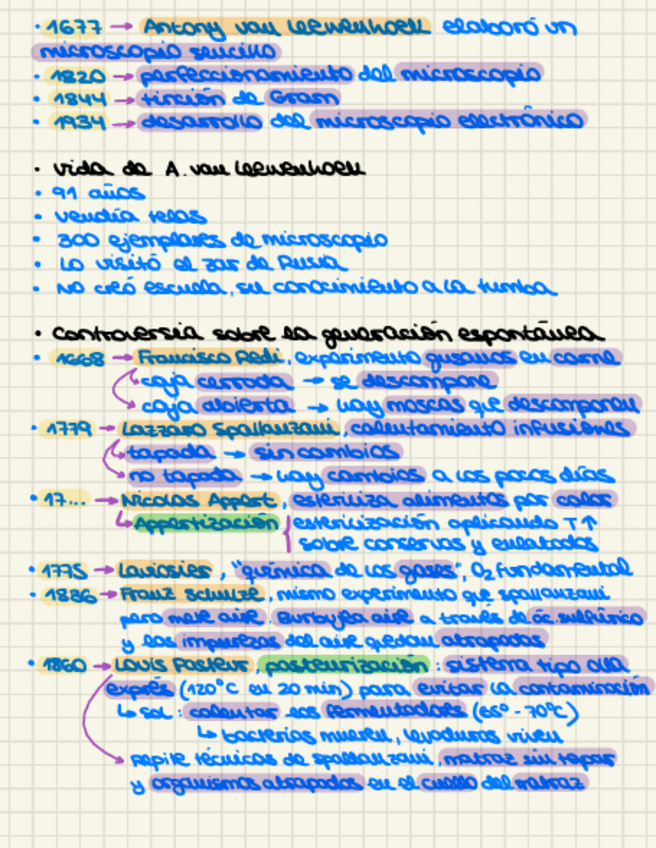 · 1677 → Antony van leewenhoek elaboró un
microscopio sencillo
· 1820 → perfeccionamiento del microscopio
· 1844 → tinción de Gram
· 1934 → desarrollo del microscopio electrónico
· vida de A. van leewenhoek
· 91 años
· vendía telas
· 300 ejemplares de microscopio
· Lo visitó el zar de Rusia
· No creó escuela, su conocimiento a la tumba
· controversia sobre la generación espontánea
· 1668 → Francisco Redi, experimento gusanos en carne
caja cerrada → se descompone
caja abierta → hay moscas que descomponen
· 1779 → Lazzaro Spallanzani, calentamiento infusiones
tapada → sin cambios
no tapada → hay cambios a los pocos días
· 17... → Nicolas Appert, esteriliza alimentos por calor
↳ Appertización { esterilización aplicando T↑
sobre conservas y enlatados
· 1775 → Lavoisier, "química de los gases", O₂ fundamental
· 1836 → Franz Schulze, mismo experimento que spallanzani
pero mete aire. Burbujea aire a través de ác. sulfúrico
y las impurezas del aire quedan atrapadas
· 1860 → Louis Pasteur, pasteurización: sistema tipo olla
exprés (120°C en 20 min) para evitar la contaminación
↳ sol: calentar los fermentadores (65°-70°C)
↳ bacterias mueren, levaduras viven
repite técnicas de spallanzani, matraz sin tapar
y organismos atrapados en el cuello del matraz